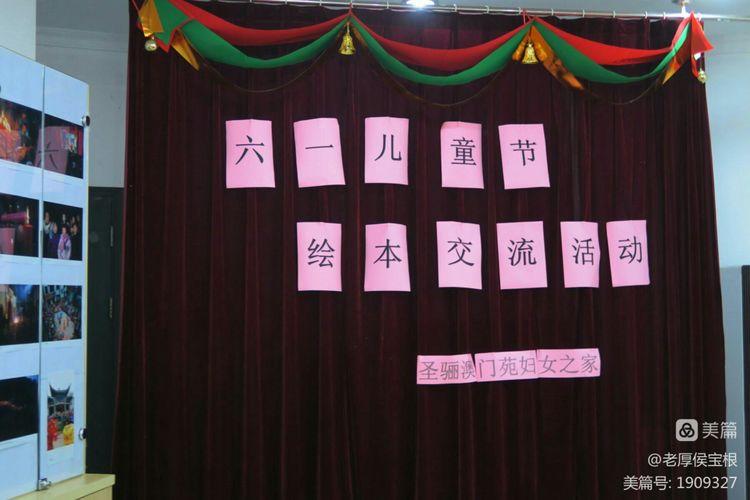 六一儿童节
绘本交流活动
圣骊澳门苑妇女之家
美篇
@老厚侯宝根
美篇号: 1909327